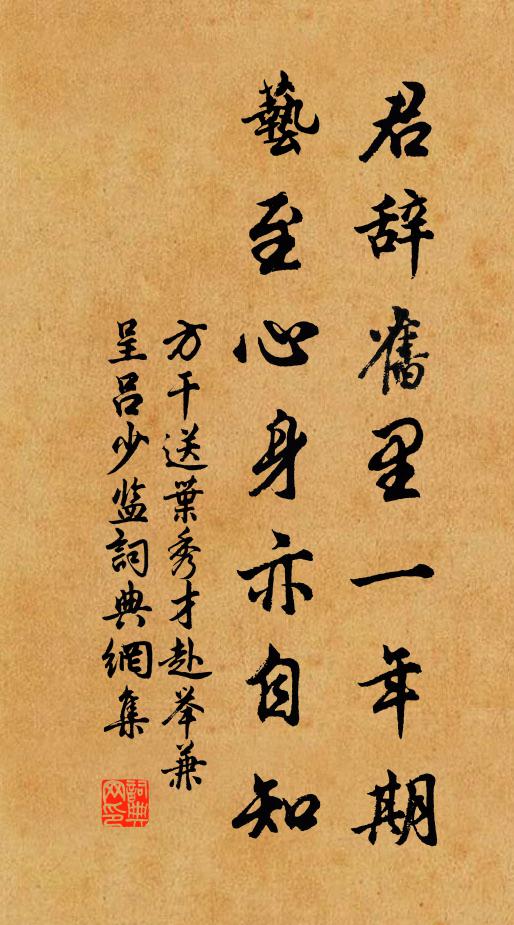 君辞舊里一年期
藝至心身亦自知
方干送葉秀才赴举兼
呈吕少监詞典網集
詞典
网印